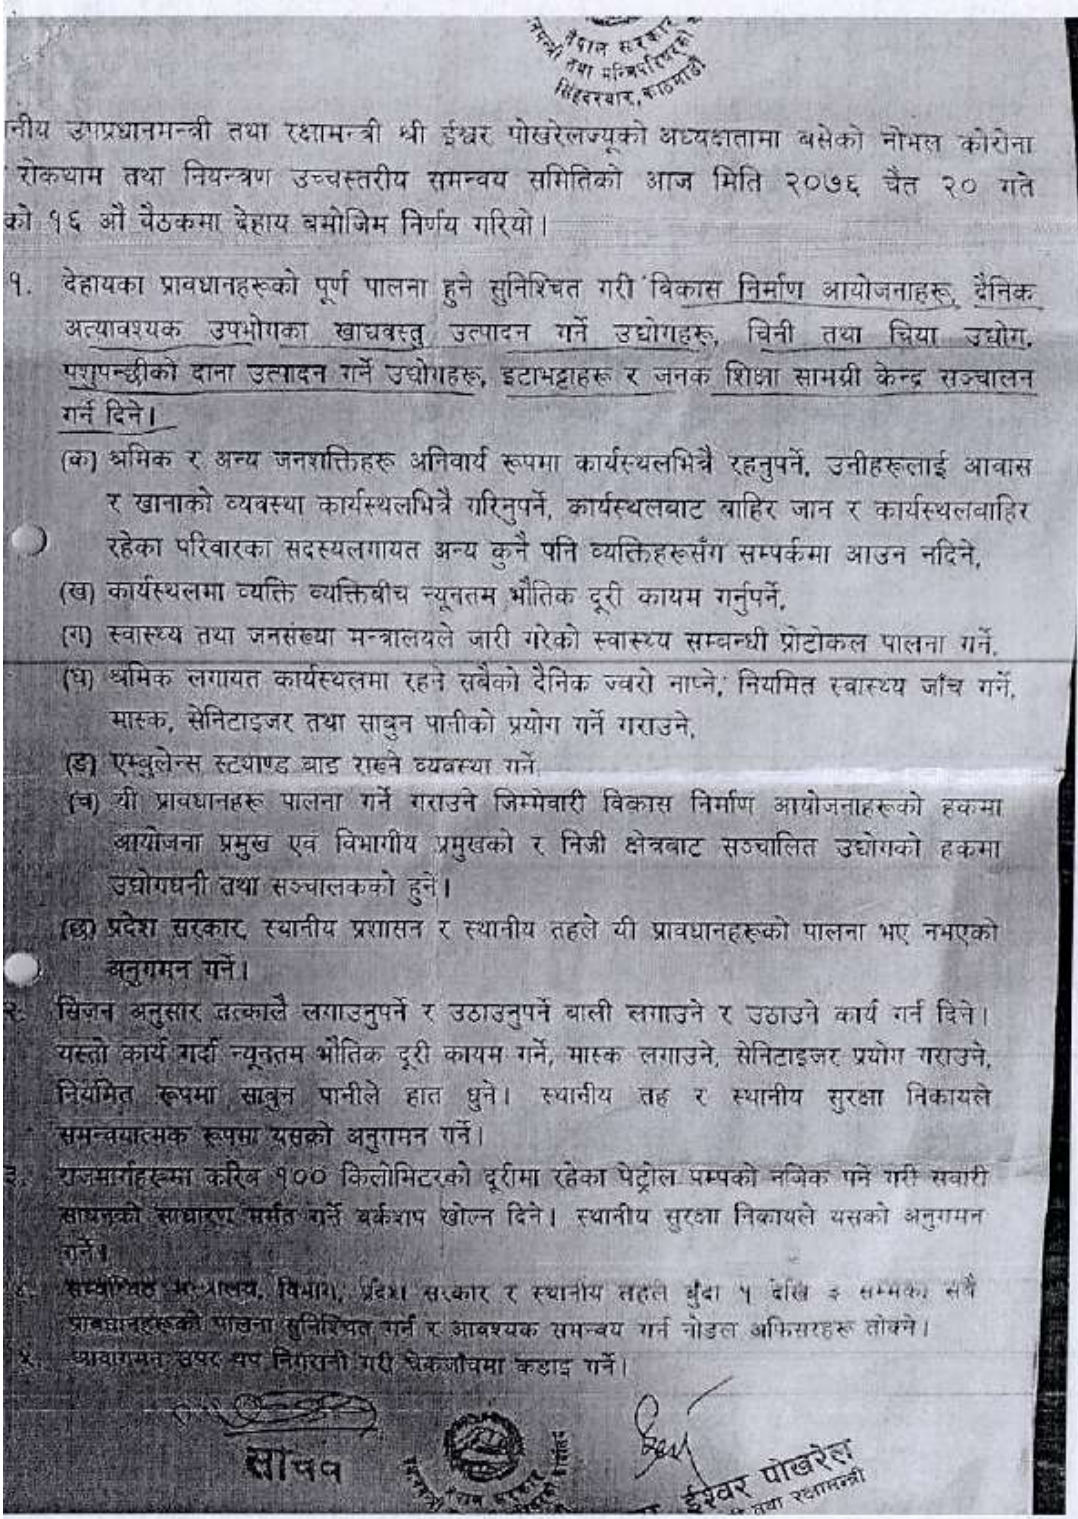 नेपाल सरकार
तथा मन्त्रिपरिषद्को
सिंहदरबार, काठमाडौं
नीय उपप्रधानमन्त्री तथा रक्षामन्त्री श्री ईश्वर पोखरेलज्यूको अध्यक्षतामा बसेको नोभल कोरोना
रोकथाम तथा नियन्त्रण उच्चस्तरीय समन्वय समितिको आज मिति २०७६ चैत २० गते
को १६ औं बैठकमा देहाय बमोजिम निर्णय गरियो।
१. देहायका प्रावधानहरूको पूर्ण पालना हुने सुनिश्चित गरी विकास निर्माण आयोजनाहरू, दैनिक
अत्यावश्यक उपभोगका खाद्यवस्तु उत्पादन गर्ने उद्योगहरू, चिनी तथा चिया उद्योग,
पशुपन्छीको दाना उत्पादन गर्ने उद्योगहरू, इटाभट्टाहरू र जनक शिक्षा सामग्री केन्द्र सञ्चालन
गर्न दिने।
(क) श्रमिक र अन्य जनशक्तिहरू अनिवार्य रूपमा कार्यस्थलभित्रै रहनुपर्ने, उनीहरूलाई आवास
र खानाको व्यवस्था कार्यस्थलभित्रै गरिनुपर्ने, कार्यस्थलबाट बाहिर जान र कार्यस्थलबाहिर
रहेका परिवारका सदस्यलगायत अन्य कुनै पनि व्यक्तिहरूसँग सम्पर्कमा आउन नदिने,
(ख) कार्यस्थलमा व्यक्ति व्यक्तिबीच न्यूनतम भौतिक दूरी कायम गर्नुपर्ने,
(ग) स्वास्थ्य तथा जनसंख्या मन्त्रालयले जारी गरेको स्वास्थ्य सम्बन्धी प्रोटोकल पालना गर्ने,
(घ) श्रमिक लगायत कार्यस्थलमा रहने सबैको दैनिक ज्वरो नाप्ने, नियमित स्वास्थ्य जाँच गर्ने,
मास्क, सेनिटाइजर तथा साबुन पानीको प्रयोग गर्ने गराउने,
(ङ) एम्बुलेन्स स्ट्याण्ड बाइ राख्ने व्यवस्था गर्ने,
(च) यी प्रावधानहरू पालना गर्ने गराउने जिम्मेवारी विकास निर्माण आयोजनाहरूको हकमा
आयोजना प्रमुख एवं विभागीय प्रमुखको र निजी क्षेत्रबाट सञ्चालित उद्योगको हकमा
उद्योगधनी तथा सञ्चालकको हुने।
(छ) प्रदेश सरकार, स्थानीय प्रशासन र स्थानीय तहले यी प्रावधानहरूको पालना भए नभएको
अनुगमन गर्ने।
२. सिजन अनुसार तत्कालै लगाउनुपर्ने र उठाउनुपर्ने बाली लगाउने र उठाउने कार्य गर्न दिने।
यस्तो कार्य गर्दा न्यूनतम भौतिक दूरी कायम गर्ने, मास्क लगाउने, सेनिटाइजर प्रयोग गराउने,
नियमित रूपमा साबुन पानीले हात धुने। स्थानीय तह र स्थानीय सुरक्षा निकायले
समन्वयात्मक रूपमा यसको अनुगमन गर्ने।
३. राजमार्गहरूमा करिब १०० किलोमिटरको दूरीमा रहेका पेट्रोल पम्पको नजिक पर्ने गरी सवारी
साधनको साधारण मर्मत गर्ने वर्कशप खोल्न दिने। स्थानीय सुरक्षा निकायले यसको अनुगमन
गर्ने।
४. सम्बन्धित मन्त्रालय, विभाग, प्रदेश सरकार र स्थानीय तहले बुँदा १ देखि ३ सम्मका सबै
प्रावधानहरूको पालना सुनिश्चित गर्न र आवश्यक समन्वय गर्न नोडल अफिसरहरू तोक्ने।
५. आवागमन उपर थप निगरानी गरी चेकजाँचमा कडाइ गर्ने।
सचिव
ईश्वर पोखरेल
तथा रक्षामन्त्री